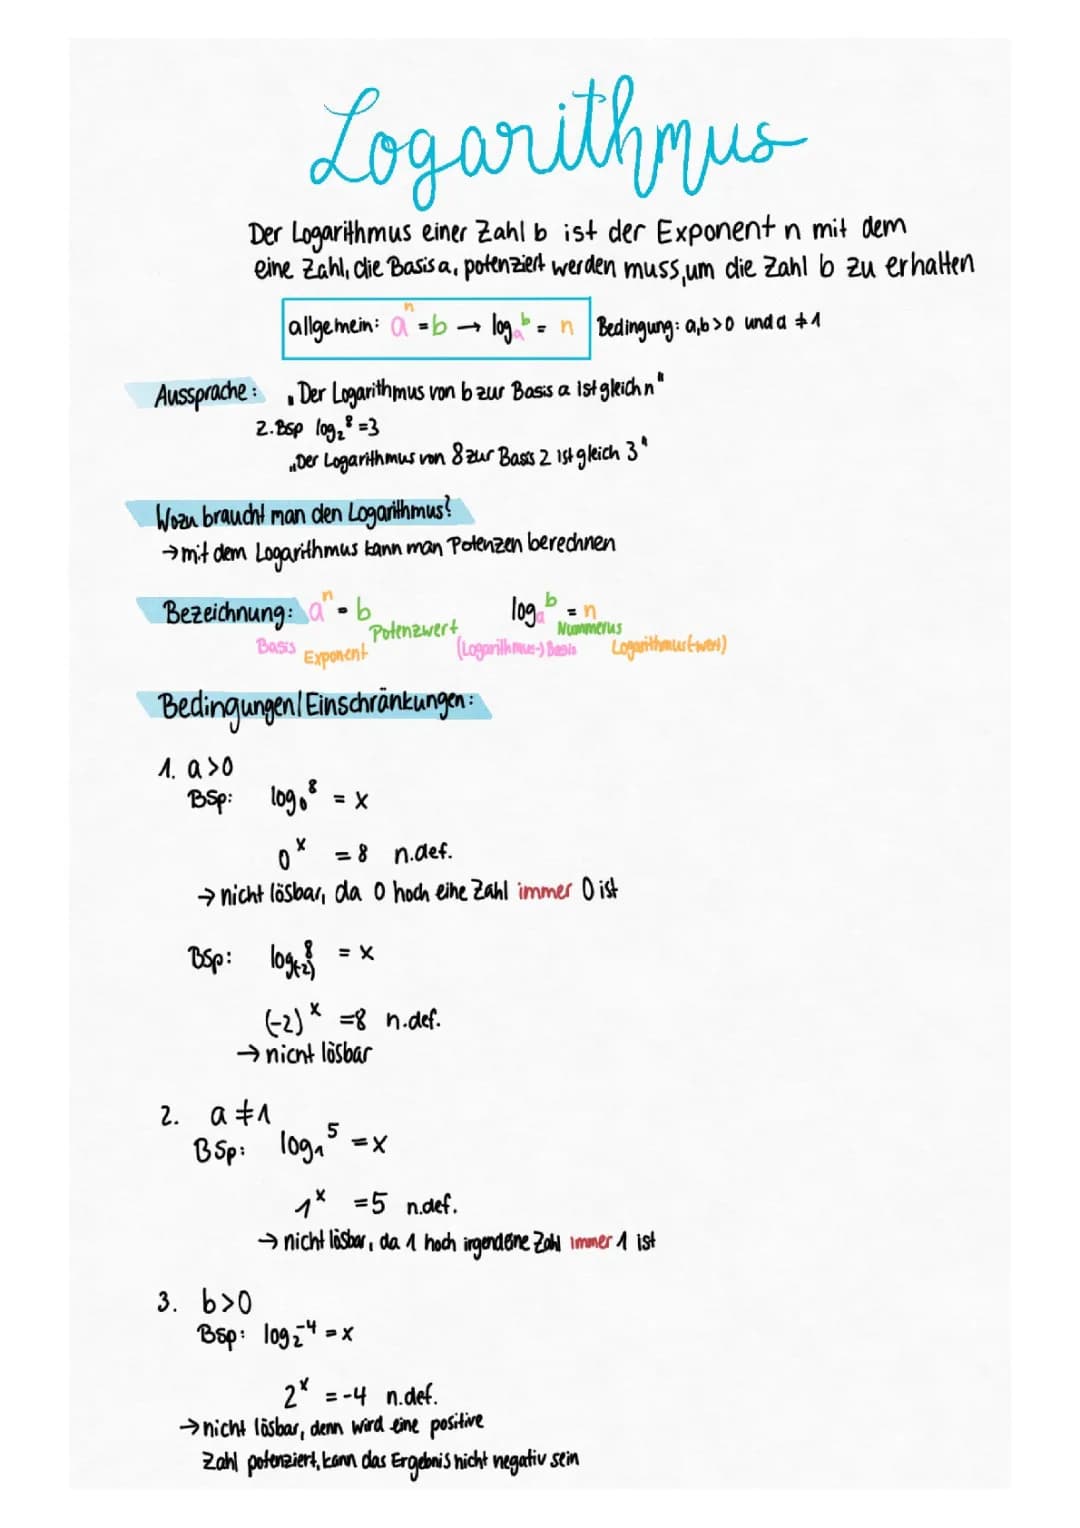 Logarithmus
Der Logarithmus einer Zahl b ist der Exponent n mit dem
eine Zahl, die Basis a, potenziert werden muss, um die Zahl b zu erhalten
allgemein: aⁿ = b → logₐᵇ = n Bedingung: a,b>0 und a ≠ 1
Aussprache: „Der Logarithmus von b zur Basis a ist gleich n"
z.Bsp log₂⁸ = 3
„Der Logarithmus von 8 zur Basis 2 ist gleich 3"
Wozu braucht man den Logarithmus?
→ mit dem Logarithmus kann man Potenzen berechnen
Bezeichnung: aⁿ = b logₐᵇ = n
Potenzwert Nummerus
Basis Exponent (Logarithmus-) Basis Logarithmus(-wert)
Bedingungen/Einschränkungen:
1. a>0
BSp: log₀⁸ = x
0ˣ = 8 n.def.
→ nicht lösbar, da 0 hoch eine Zahl immer 0 ist
BSp: log₍₋₂₎⁸ = x
(-2)ˣ = 8 n.def.
→ nicht lösbar
2. a ≠ 1
BSp: log₁⁵ = x
1ˣ = 5 n.def.
→ nicht lösbar, da 1 hoch irgendeine Zahl immer 1 ist
3. b>0
BSp: log₂⁻⁴ = x
2ˣ = -4 n.def.
→ nicht lösbar, denn wird eine positive
Zahl potenziert, kann das Ergebnis nicht negativ sein